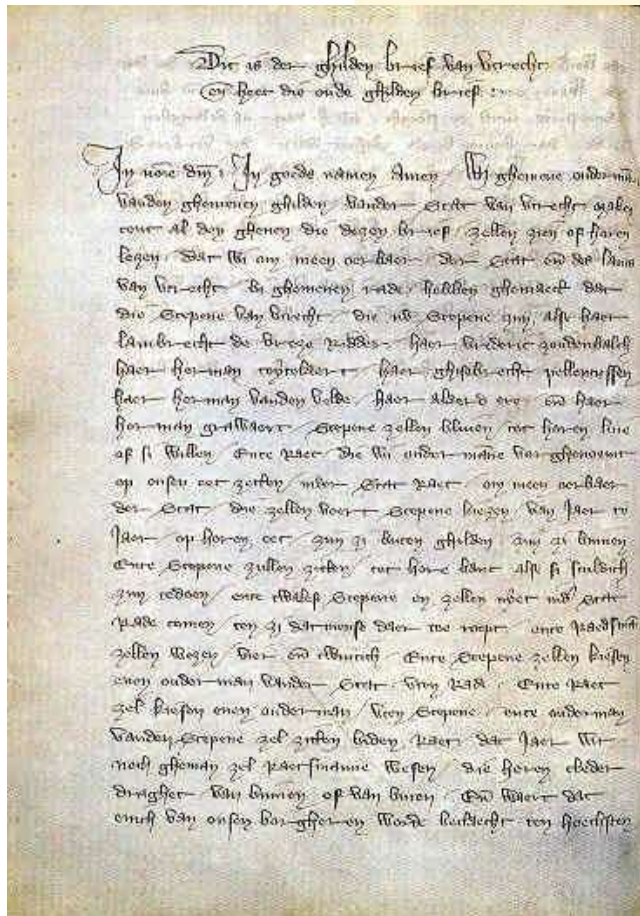 Dit is der ghilden brief van vtrecht
eñ heet die oude ghilden brief
In noīe dnī In goede namen Amen Wi ghemene ouderm
vanden ghemenen ghilden vander Stat van vtrecht
cont al den ghenen die dezen brief zellen zien of horen
lezen dat wi om meen oerbaer der Stat eñ des lants
van vtrecht bi ghemenen rade hebben ghemaect dat
die Scepene van vtrecht die nv Scepene zyn alse haer
lambrecht de vreze Ridder haer vrederic zoudenbalch
haer herman haer ghisebrecht
haer herman vanden velde haer eñ haer
herman Scepene zellen bliven tot horen
of si willen Ende Raet die wi ouder manne vorghenoemt
op onsen eet zetten inder Stat Raet om meen oerbaer
der Stat die zellen voert Scepene kiezen van Jaer te
Jaer op horen eet zyn zi buten ghilden zyn zi binnen
Ente Scepene zullen zitten tot hore banc alse si sculdich
zyn tedoen ente twalef Scepene en zellen niet Stat
Rade comen ten zi datmense daer toe roept ente
zellen wezen vier eñ twintich Ente Scepene zellen kiesen
enen ouderman vander Stat vten Rade Ente Raet
zel kiesen enen ouderman vten Scepene ente ouderman
vanden Scepene zel zitten biden Raet dat Jaer wt
noch gheman zel Raetsmanne wesen die heren cleder
draghet van binnen of van buten Eñ waert dat
enich van onsen borgheren worde ten hoechsten